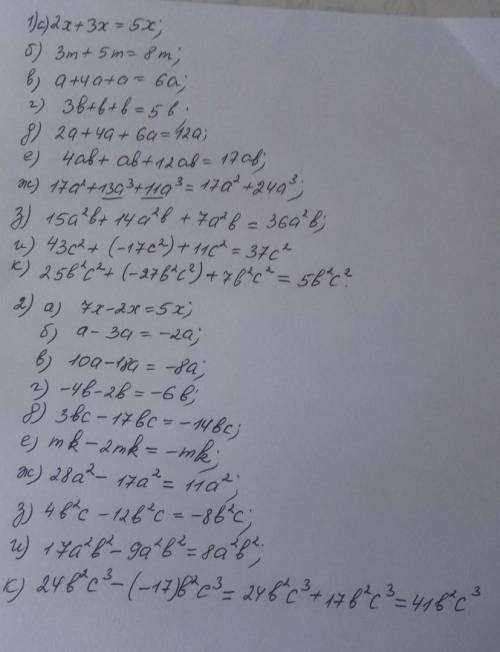 1) а) 2x + 3x = 5x;
б) 3m + 5m = 8m;
в) a + 4a + a = 6a;
г) 3в + в + в = 5в.
д) 2a + 4a + 6a = 12a;
е) 4ав + ав + 12ав = 17ав;
ж) 17a² + 13a³ + 11a³ = 17a² + 24a³;
з) 15a²в + 14a²в + 7a²в = 36a²в;
и) 43c² + (-17c²) + 11c² = 37c²
к) 25в²c² + (-27в²c²) + 7в²c² = 5в²c².
2) а) 7x - 2x = 5x;
б) a - 3a = -2a;
в) 10a - 18a = -8a;
г) -4в - 2в = -6в;
д) 3вc - 17вc = -14вc;
е) mk - 2mk = -mk;
ж) 28a² - 17a² = 11a²;
з) 4в²c - 12в²c = -8в²c;
и) 17a²в² - 9a²в² = 8a²в²;
к) 24в²c³ - (-17)в²c³ = 24в²c³ + 17в²c³ = 41в²c³